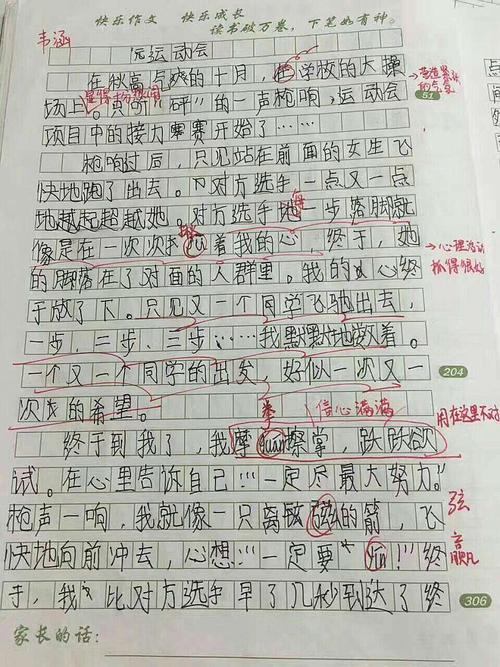 快乐作文 快乐成长
读书破万卷，下笔如有神。
韦涵
运动会
在秋高气爽的十月，在学校的大操
场上。显得十分热闹 “砰”的一声枪响，运动会
51
项目中的接力赛开始了……
枪响过后，只见站在前面的女生飞
快地跑了出去。对方选手一点又一点
地越起超越她。对方选手她每一步落脚就
像是在一次次揪jiu着我的心，终于，她
→心理活动
抓得很好
的脚落在了对面的人群里。我的心终
于放了下。只见又一个同学飞驰出去，
一步，二步，三步……我默默地数着。
一个又一个同学的出发，好似一次又一
204
次的希望。
拳 信心满满
用在这里不对
终于到我了，我摩quan擦掌，跃跃欲
试。在心里告诉自己“一定尽最大努力。”
枪声一响，我就像一只离的箭，飞
弦
快地向前冲去，心想“一定要“yin”！”终
赢
于，我比对方选手早了几秒到达了终
306
家长的话：